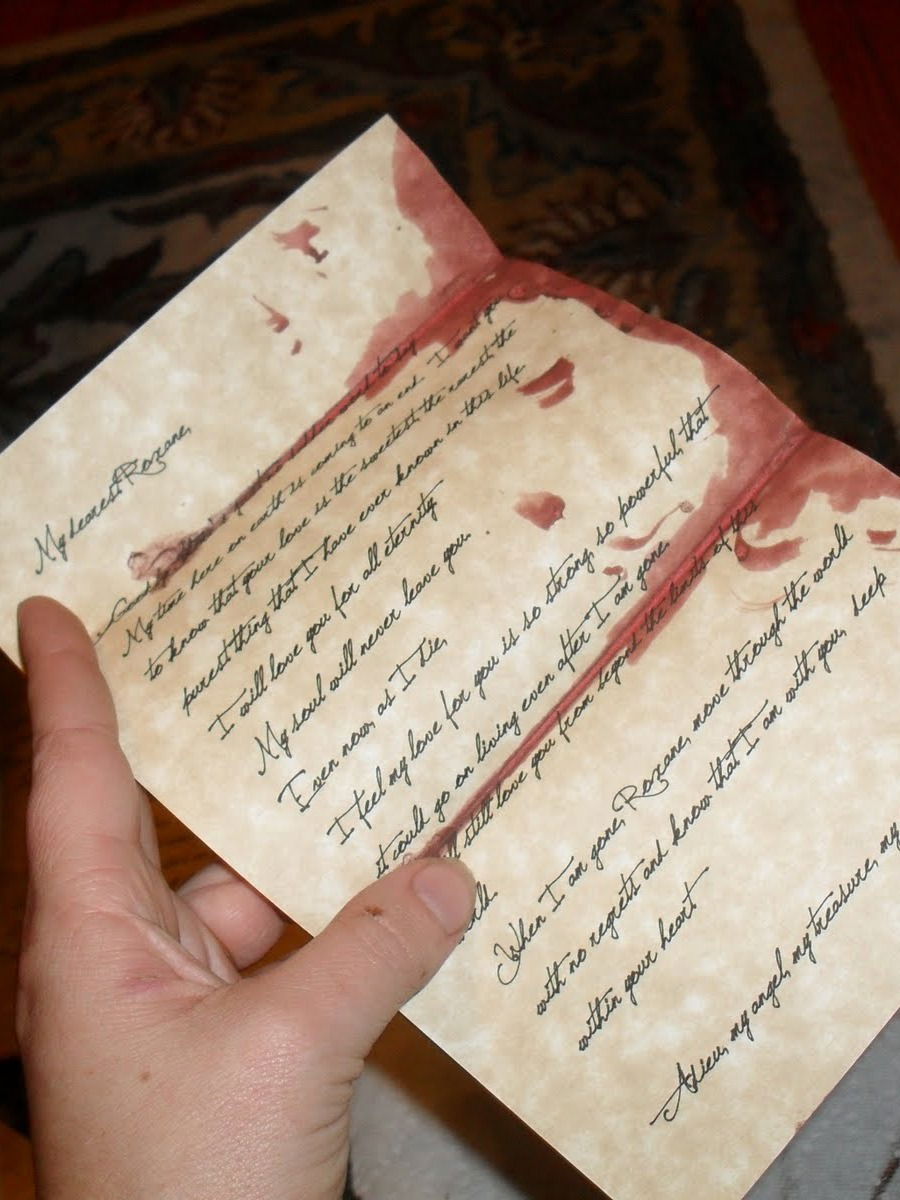 My dearest Roxane,
My time here on earth is coming to an end. I want you
to know that your love is the sweetest the rarest the
purest thing that I have ever known in this life
I will love you for all eternity
My soul will never leave you.
Even now, as I die,
I feel my love for you is so strong, so powerful, that
it could go on living even after I am gone.
still love you from beyond the limits of this
When I am gone, Roxane, move through the world
with no regrets and know that I am with you, deep
within your heart
Adieu, my angel, my treasure, my